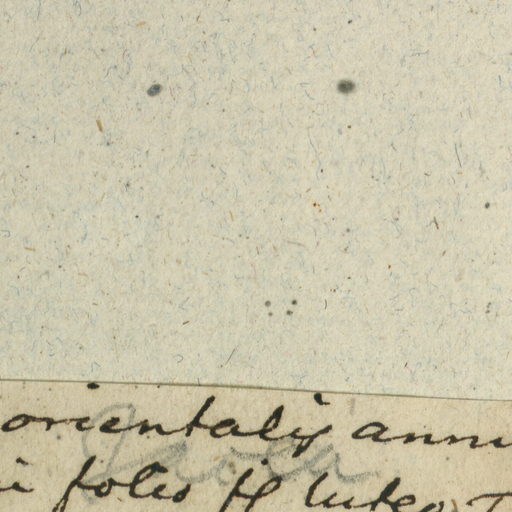 orientalis annu
folio fl luteo